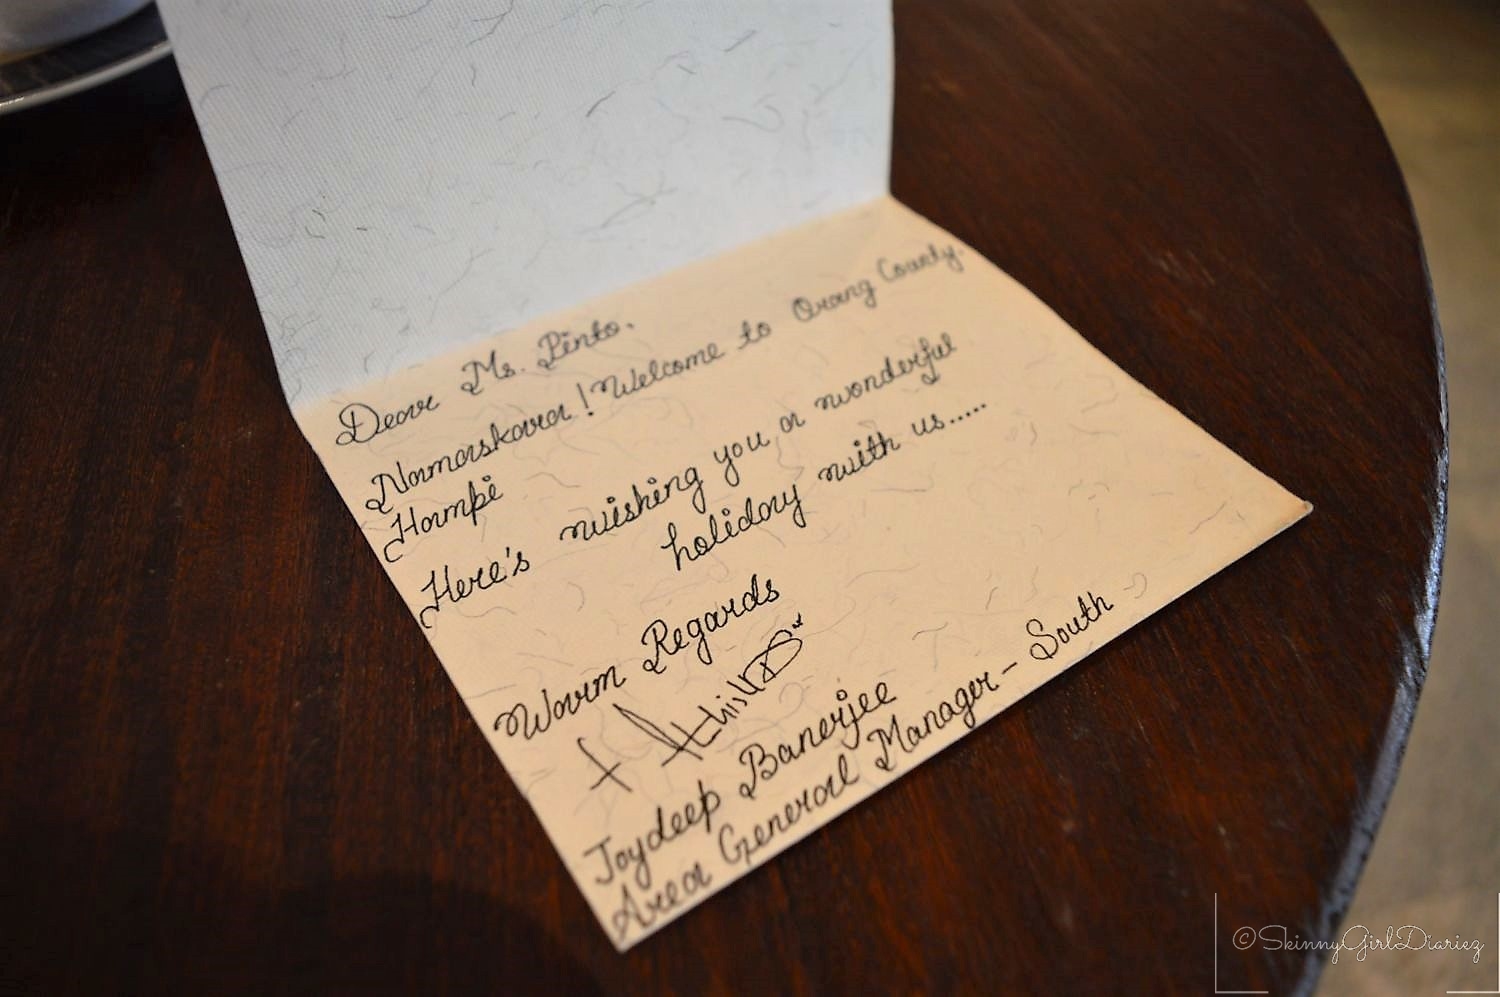 Dear Ms. Pinto.
Namaskara! Welcome to Orang County.
Hampi
Here's wishing you a wonderful
holiday with us.....
Warm Regards
Joydeep Banerjee
Area General Manager - South
©SkinnyGirlDiariez